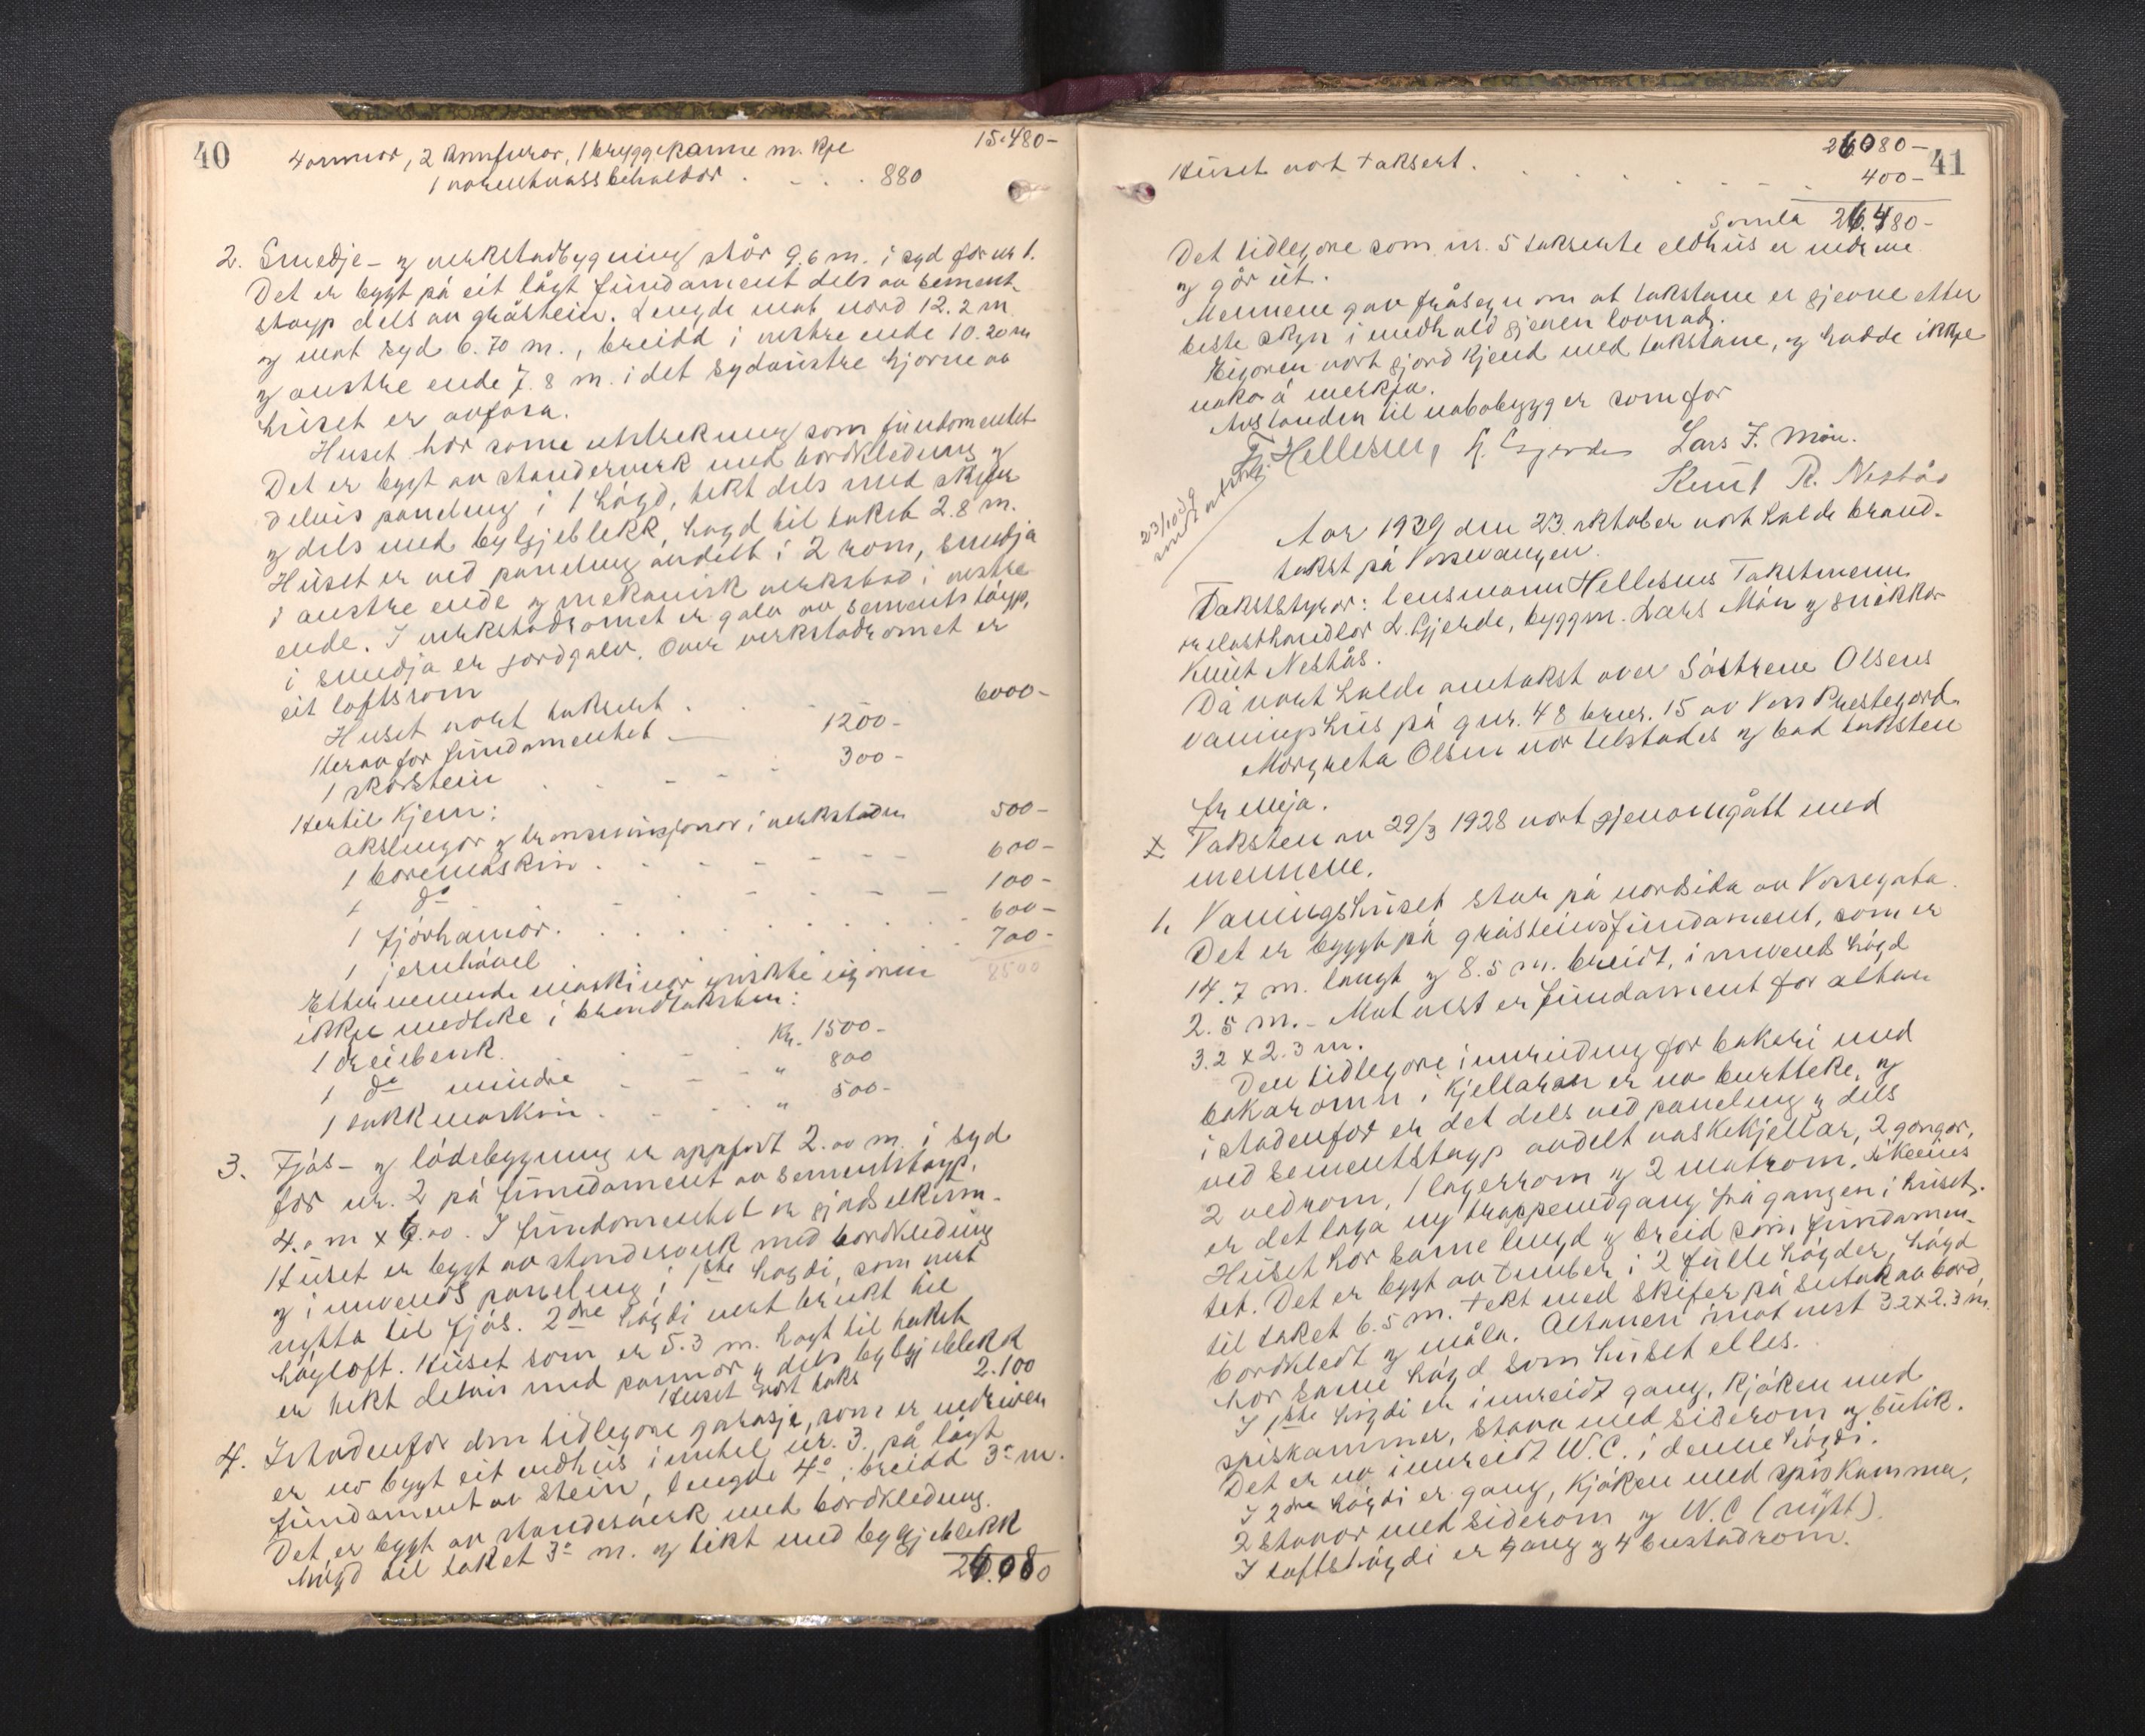 40
15.480-
4 omnar, 2 kamfuror, 1 bryggepanne m. kpe
1 varmtvassbehaldar . . . . 880
2. Smedje- og verkstadbygning står 9.6 m. i syd for nr 1.
Det er bygt på eit lågt fundament dels av sement-
støyp dels av gråstein. Lengde mot nord 12.2 m
og mot syd 6.70 m., breidd i vestre ende 10.20 m
og austre ende 7.8 m. i det sydaustre hjørne av
huset er avfasa.
Huset har same utstrekning som fundamentet
Det er bygt av standerverk med bordkledning og
delvis paneling i 1 høgd, tekt dels med skifer
og dels med bylgjeblekk, høgd til taket 2.8 m.
Huset er ved paneling avdelt i 2 rom, smedja
i austre ende og mekanisk verkstad i vestre
ende. I verkstadromet er golv av sementstøyp,
i smedja er jordgolv. Over verkstadromet er
eit loftsrom
Huset vart taksert . . 6000-
Herav for fundamentet — 1200-
1 skorstein . . . . 300-
Hertil kjem:
akslingar og transmisjonar i verkstaden 500-
1 boremaskin . . . . 600-
1 do . . . . 100-
1 fjørhamar . . . . 600-
1 jernhövel . . . . 700-
8500
Etternemnde maskinar ynskte eigaren
ikkje medteke i brandtaksten:
1 dreiebenk . . . Kr. 1500-
1 do mindre . . . " 800
1 maskin . . . " 500-
3. Fjøs- og lödebygning er oppført 2.00 m. i syd
for nr. 2 på fundament av sementstøyp,
4.0 m x 6.00. I fundamentet er gjødselkum.
Huset er bygt av standerverk med bordkledning
og innvends paneling i 1ste høgdi, som vert
nytta til fjøs. 2dre høgdi vert brukt til
høyloft. Huset som er 5.3 m. høgt til taket
er tekt delvis med pannor og dels bylgjeblekk
Huset vart taks 2.100
4. Istadenfor den tidlegare garasje, som er nedriven
er no bygt eit vedhus inntil nr. 3. på lågt
fundament av stein, lengde 4.0, breidd 3.0 m.
Det er bygt av standerverk med bordkledning.
høgd til taket 3.0 m. og tekt med bylgjeblekk
26.080
26080-
41
Huset vart taksert. . . . . . . 400-
Samla 26.480-
Det tidlegare som nr. 5 takserte eldhus er nedreve
og går ut.
Mennene gav fråsegn om at takstane er gjevne etter
beste skyn i medhald gjeven lovnad.
Eigaren vart gjord kjend med takstane, og hadde ikkje
noko å merkja.
Avstanden til nabobygg er som før
Hellesnes, L. Gjerde Lars J. Møn.
Knut R. Nestås
23/10 39
Aar 1939 den 23. oktober vart halde brand-
takst på Vossevangen.
Takststyrar: lensmann Hellesnes Takstmenn
L. Gjerde, byggm. Lars Møn og snikkar
Knut Nestås.
Då vart halde omtakst over Söstrene Olsens
vaningshus på gnr. 48 bnr. 15 av Voss Prestegard.
Margreta Olsen var tilstades og bad taksten
fremja.
x Taksten av 29/3 1928 vart gjenomgått med
mennene.
1. Vaningshuset står på nordsida av Vossegata.
Det er byggt på gråsteinsfundament, som er
14.7 m. langt og 8.5 m. breidt, innvends høgd
2.5 m. - Mot vest er fundament for altan
3.2 x 2.3 m.
Den tidlegare innreiding for bakeri med
bakaromn i kjellaren er no burtteke, og
i stadenfor er det dels ved paneling og dels
ved sementstøyp avdelt vaskekjellar, 2 gangar,
2 vedrom, 1 lagerrom og 2 matrom.
er det laga ny trappenedgang frå gangen i huset.
Huset har same lengd og breid som fundamen-
tet. Det er bygt av tømber i 2 fulle høgder, høgd
til taket 6.5 m. tekt med skifer på sutak av bord,
bordkledt og måla. Altanen imot vest 3.2 x 2.3 m.
har same høgd som huset elles.
I 1ste høgdi er innreidt gang, kjøken med
spiskammer, stova med siderom og butik.
Det er no innreidt W.C. i denne høgdi.
I 2dre høgdi er gang, kjøken med spiskammer,
2 stovor med siderom og W.C (nytt).
I loftshøgdi er gang og 4 bustadrom.